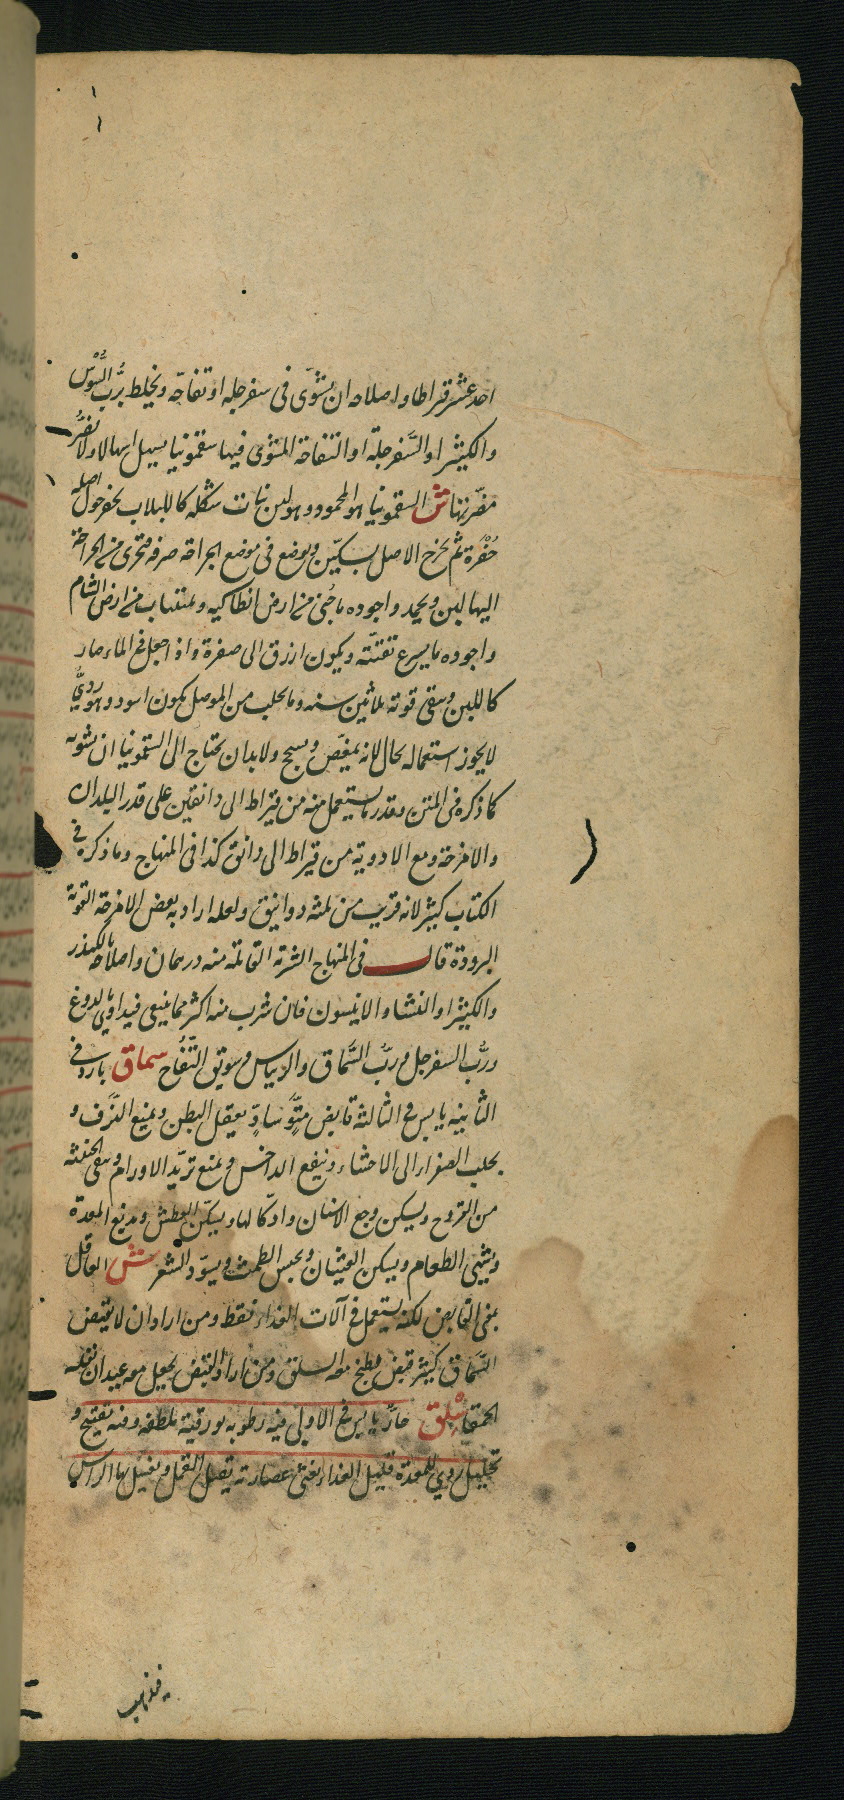 احد عشر قيراطا واصلاحه ان يشوّى فى سفرجله او تفاحّه ويخلط بربّ السّوْس
والكيثرا والسَّفرجلة او التفاحة المشوّى فيها سقمونيا يسهل اسهالا ولا تضرُّ
مضرّتها ش السقمونيا هو المحموده وهو لبن نبات شكله كاللبلاب يحفر حول اصله
حُفْرة ثم يخرج الاصل بسكّين ويوضع فى موضع الجراحة صرفه فتجرى من الجراحة
اليها لبن ويجمد واجوده ما جُنى من ارض انطاكيه ويتنهاب من ارض الشام
واجوده ما يسرع تفتّته ويكون ازرق الى صفرة واذا جعل فى الماء صار
كاللبن ويبقى قوته ثلاثين سنه وما يجلب من الموصل يكون اسود وهو رديُّ
لا يجوز استعماله بحال لانه يمغّص ويسحج ولابد ان يحتاج الى السقمونيا ان يشويه
كما ذكره فى المتن وقدر ما يستعمل منه من قيراط الى دانقين على قدر البلدان
والامزجة ومع الادوية من قيراط الى دانق كذا فى المنهاج وما ذكره فى
الكتاب كثير لانه قريب من ثلثه دوانيق ولعله اراد به بعض الامزجة القوية
البرودة قال فى المنهاج الشربة القاتلة منه درهمان واصلاحه بالكندر
والكيثرا والنشا والانيسون فان شرب منه اكثر مما ينبغى فيداوى بالدوغ
وربُّ السفرجل وربُّ السُّماق والريباس وسويق التّفُاح سماق بارد فى
الثانيه يابس فى الثالثة قابض مقوّ يعقل البطن ويمنع النَّزف و
يحلب الصفرا الى الاحشاء وينفع الداخس ويمنع تزيّد الاورام وينقى الخبيثه
من القروح ويسكن وجع الاسنان واُكّالها ويسكّن العطش ويدبغ المعدة
ويشهى الطعام ويسكن الغثيان ويحبس الطمث ويسوّد الشعر ش العاقل
بمعنى القابض لكنه يستعمل فى آلات الغذاء فقط ومن اراد ان لا يقبض
السُّماق كثير قبض يطبخ معه السلق ومن اراد القبض يجعل معه عيدان بقله
الحمقا سِلْق حارّ يابس فى الاولى فيه رطوبه بورقيّة ملطّفه وفيه تفتيح و
تحليل ردي للمعدة قليل الغذاء يغثى عصارته تقتل القمل ويغسل بها الراس
فيذهب